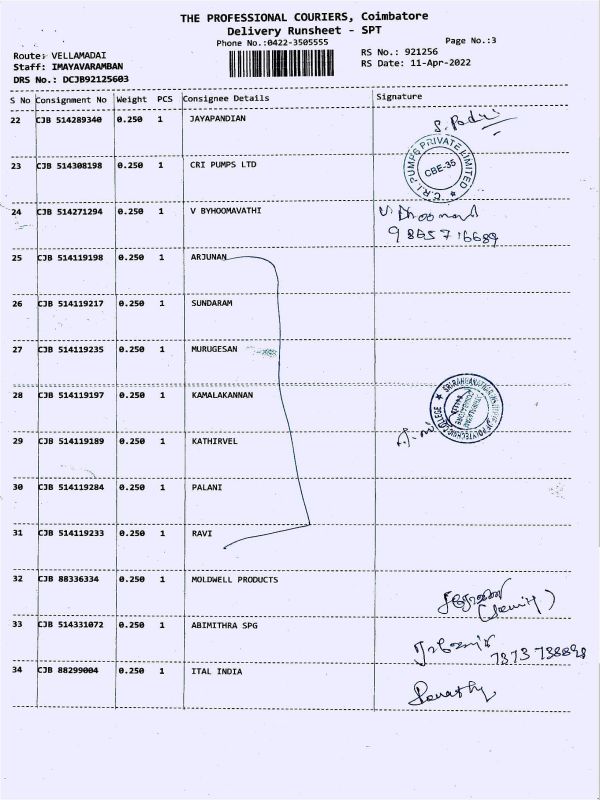 THE PROFESSIONAL COURIERS, Coimbatore
Delivery Runsheet - SPT
Phone No.:0422-3505555
Page No.:3
Route: VELLAMADAI
RS No.: 921256
Staff: IMAYAVARAMBAN
RS Date: 11-Apr-2022
DRS No.: DCJB92125603
S No Consignment No Weight PCS Consignee Details Signature
22 CJB 514289340 0.250 1 JAYAPANDIAN
23 CJB 514308198 0.250 1 CRI PUMPS LTD
C.R.I. PUMPS PRIVATE LIMITED
CBE-35
24 CJB 514271294 0.250 1 V BYHOOMAVATHI
9865716689
25 CJB 514119198 0.250 1 ARJUNAN
26 CJB 514119217 0.250 1 SUNDARAM
27 CJB 514119235 0.250 1 MURUGESAN
28 CJB 514119197 0.250 1 KAMALAKANNAN
29 CJB 514119189 0.250 1 KATHIRVEL
30 CJB 514119284 0.250 1 PALANI
31 CJB 514119233 0.250 1 RAVI
32 CJB 88336334 0.250 1 MOLDWELL PRODUCTS
33 CJB 514331072 0.250 1 ABIMITHRA SPG
34 CJB 88299004 0.250 1 ITAL INDIA